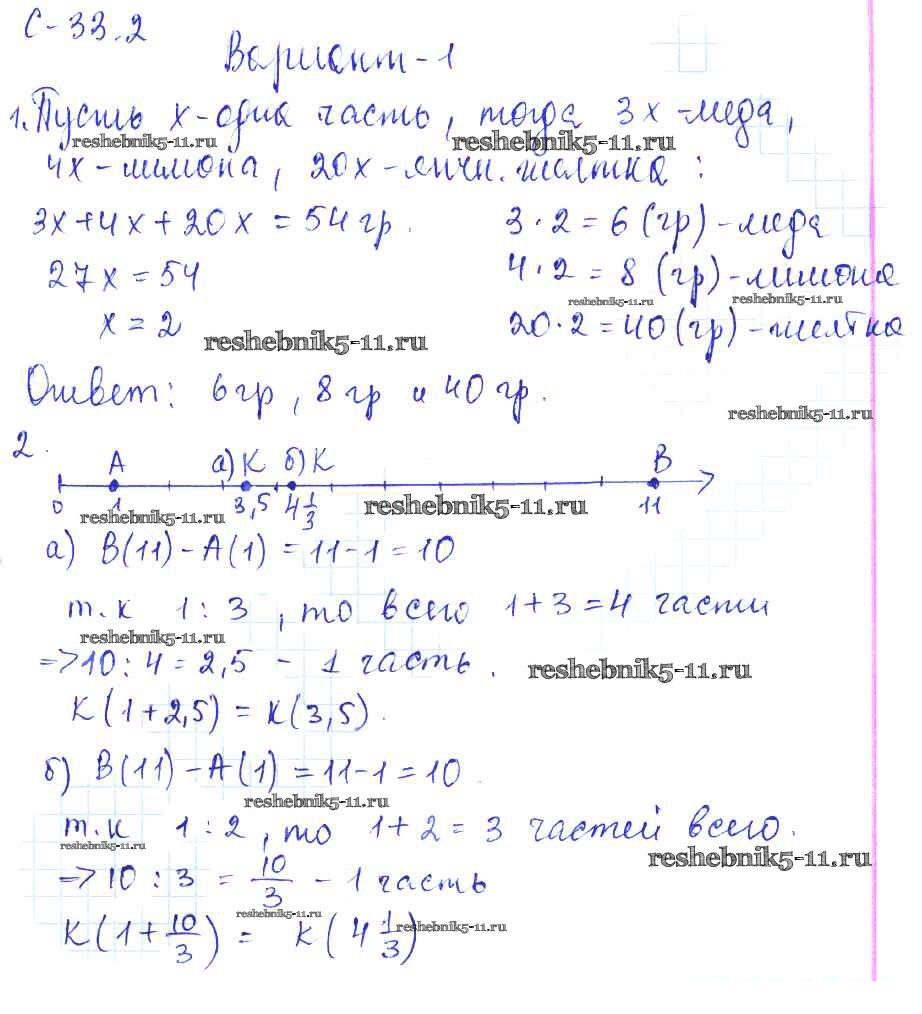 С-33.2
Вариант-1
1. Пусть x-одна часть, тогда 3x-меда,
reshebnik5-11.ru reshebnik5-11.ru
4x-лимона, 20x-яичн. желтка:
3x+4x+20x=54 гр. 3·2=6 (гр)-меда
27x=54 4·2=8 (гр)-лимона
reshebnik5-11.ru reshebnik5-11.ru
x=2 reshebnik5-11.ru 20·2=40 (гр)-желтка
Ответ: 6 гр, 8 гр и 40 гр.
reshebnik5-11.ru
2.
A а) K б) K B
0 1 3,5 4 1/3 11
reshebnik5-11.ru reshebnik5-11.ru
а) B(11)-A(1)=11-1=10
т.к 1:3, то всего 1+3=4 части
reshebnik5-11.ru
=>10:4=2,5 - 1 часть. reshebnik5-11.ru
K(1+2,5)=K(3,5).
б) B(11)-A(1)=11-1=10.
reshebnik5-11.ru
т.к 1:2, то 1+2=3 частей всего.
reshebnik5-11.ru reshebnik5-11.ru
=>10:3=10/3 - 1 часть
reshebnik5-11.ru reshebnik5-11.ru
K(1+10/3)= K(4 1/3)